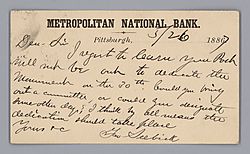 METROPOLITAN NATIONAL BANK.
Pittsburgh, 5/26 1887
Dear Sir I regret to learn your Post
will not be out to dedicate the
Monument on the 30th. Could you bring
out a committee, or could you designate
some other day, I think by all means the
dedication should take place
Yours &c